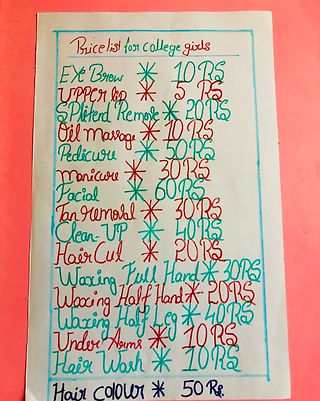 Price list for college girls
EYE Brow * 10 RS
UPPER lip * 5 RS
SPlitend Remove * 20RS
Oil massage * 10RS
Pedicure * 50RS
manicure * 30RS
Facial * 60RS
Tan removal * 30RS
Clean-UP * 40RS
HairCut * 20RS
Waxing Full Hand * 30RS
Waxing Half Hand * 20RS
Waxing Half Leg * 40RS
Under Arms * 10RS
Hair Wash * 10RS
Hair colour * 50 Rs.